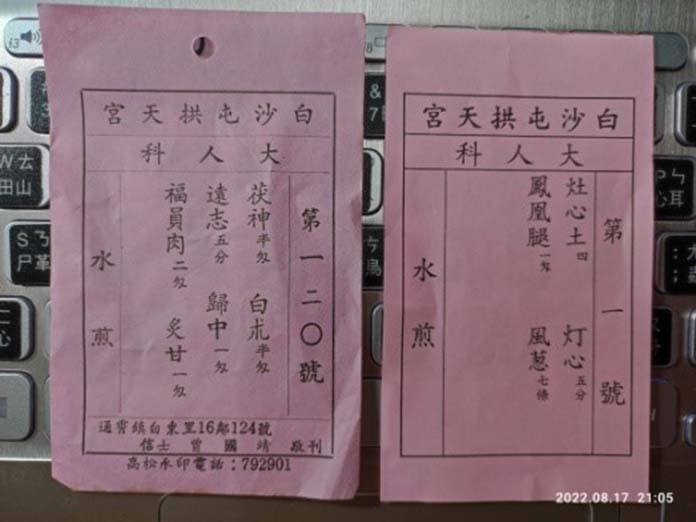 白沙屯拱天宮
大人科
第一二〇號
茯神半匁 白朮半匁
遠志五分 歸中一匁
福員肉二匁 炙甘一匁
水煎
通霄鎮白東里16鄰124號
信士 曾國靖 敬刊
高松承印電話：792901
白沙屯拱天宮
大人科
第一號
灶心土四 灯心五分
鳳凰腿一匁 風葱七條
水煎
2022.08.17 21:05